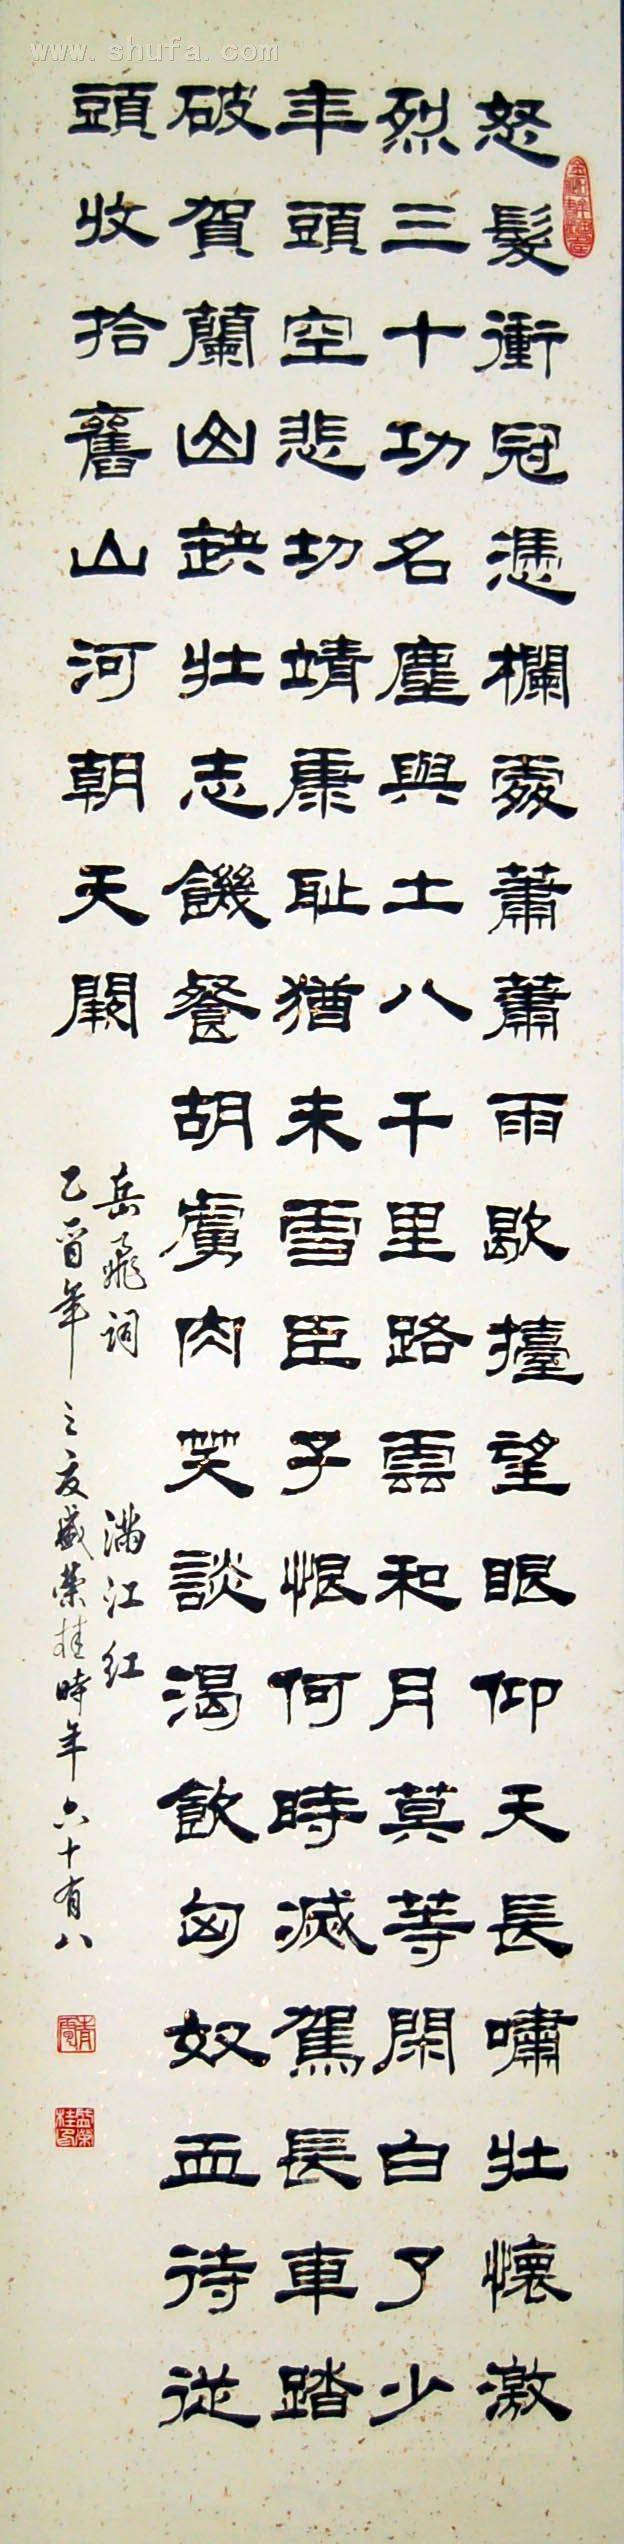 www.shufa.com
怒髮衝冠憑欄處蕭蕭雨歇擡望眼仰天長嘯壯懷激
烈三十功名塵與土八千里路雲和月莫等閑白了少
年頭空悲切靖康耻猶未雪臣子恨何時滅駕長車踏
破賀蘭山缺壯志饑餐胡虜肉笑談渴飲匈奴血待從
頭收拾舊山河朝天闕
岳飛詞 滿江红
乙酉年之夏盛榮桂時年六十有八
盛榮桂印